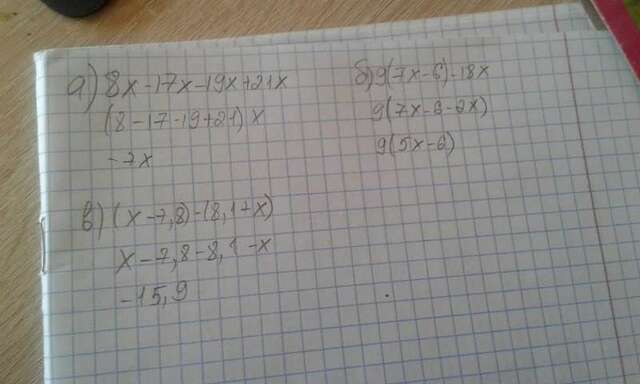 а) 8x-17x-19x+21x
(8-17-19+21)x
-7x
б) 9(7x-6)-18x
9(7x-6-2x)
9(5x-6)
в) (x-7,8)-(8,1+x)
x-7,8-8,1-x
-15,9